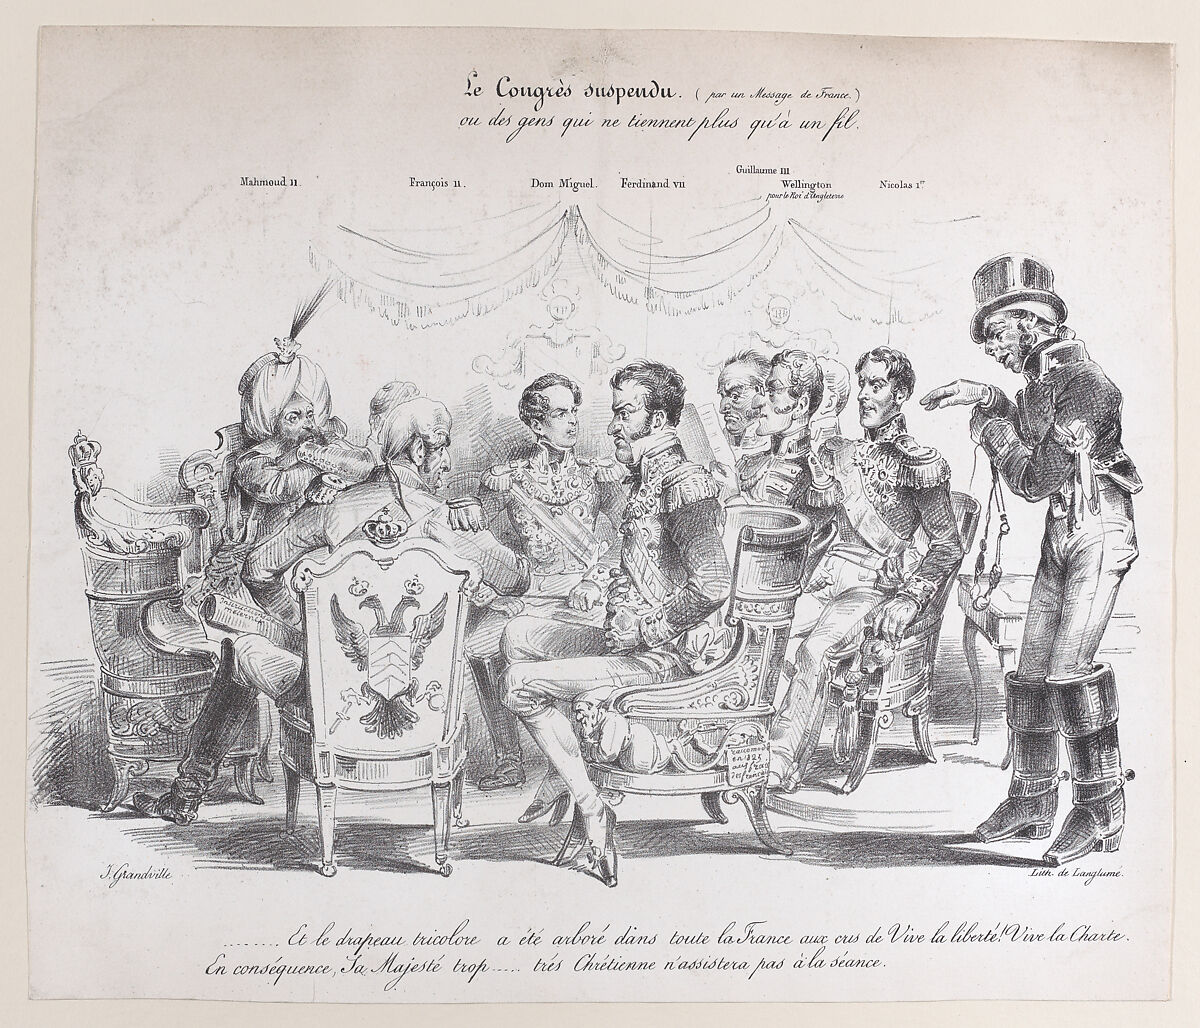 Le Congrès suspendu. (par un Message de France.)
ou des gens qui ne tiennent plus qu'à un fil.
Guillaume III
Mahmoud II. François II. Dom Miguel. Ferdinand VII Wellington Nicolas 1er
pour le Roi d'Angleterre
en 1823
aux frais
des francs
J. Grandville
Lith. de Langlumé.
......... Et le drapeau tricolore a été arboré dans toute la France aux cris de Vive la liberté! Vive la Charte.
En conséquence, Sa Majesté trop ..... très Chrétienne n'assistera pas à la séance.